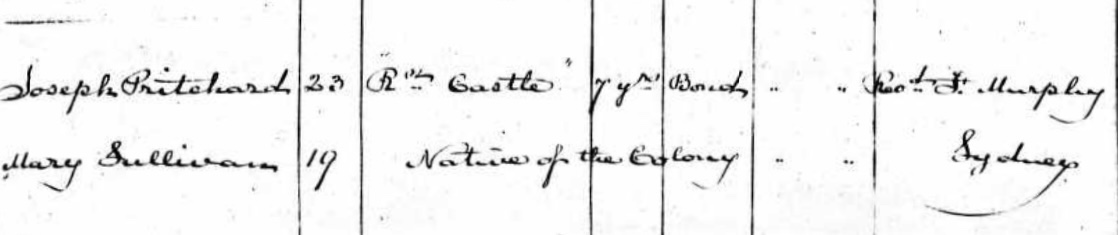 Joseph Pritchard 23 Rt. Castle" 7 yrs Bond " " Revd. F. Murphy
Mary Sullivan 19 Native of the Colony " " Sydney